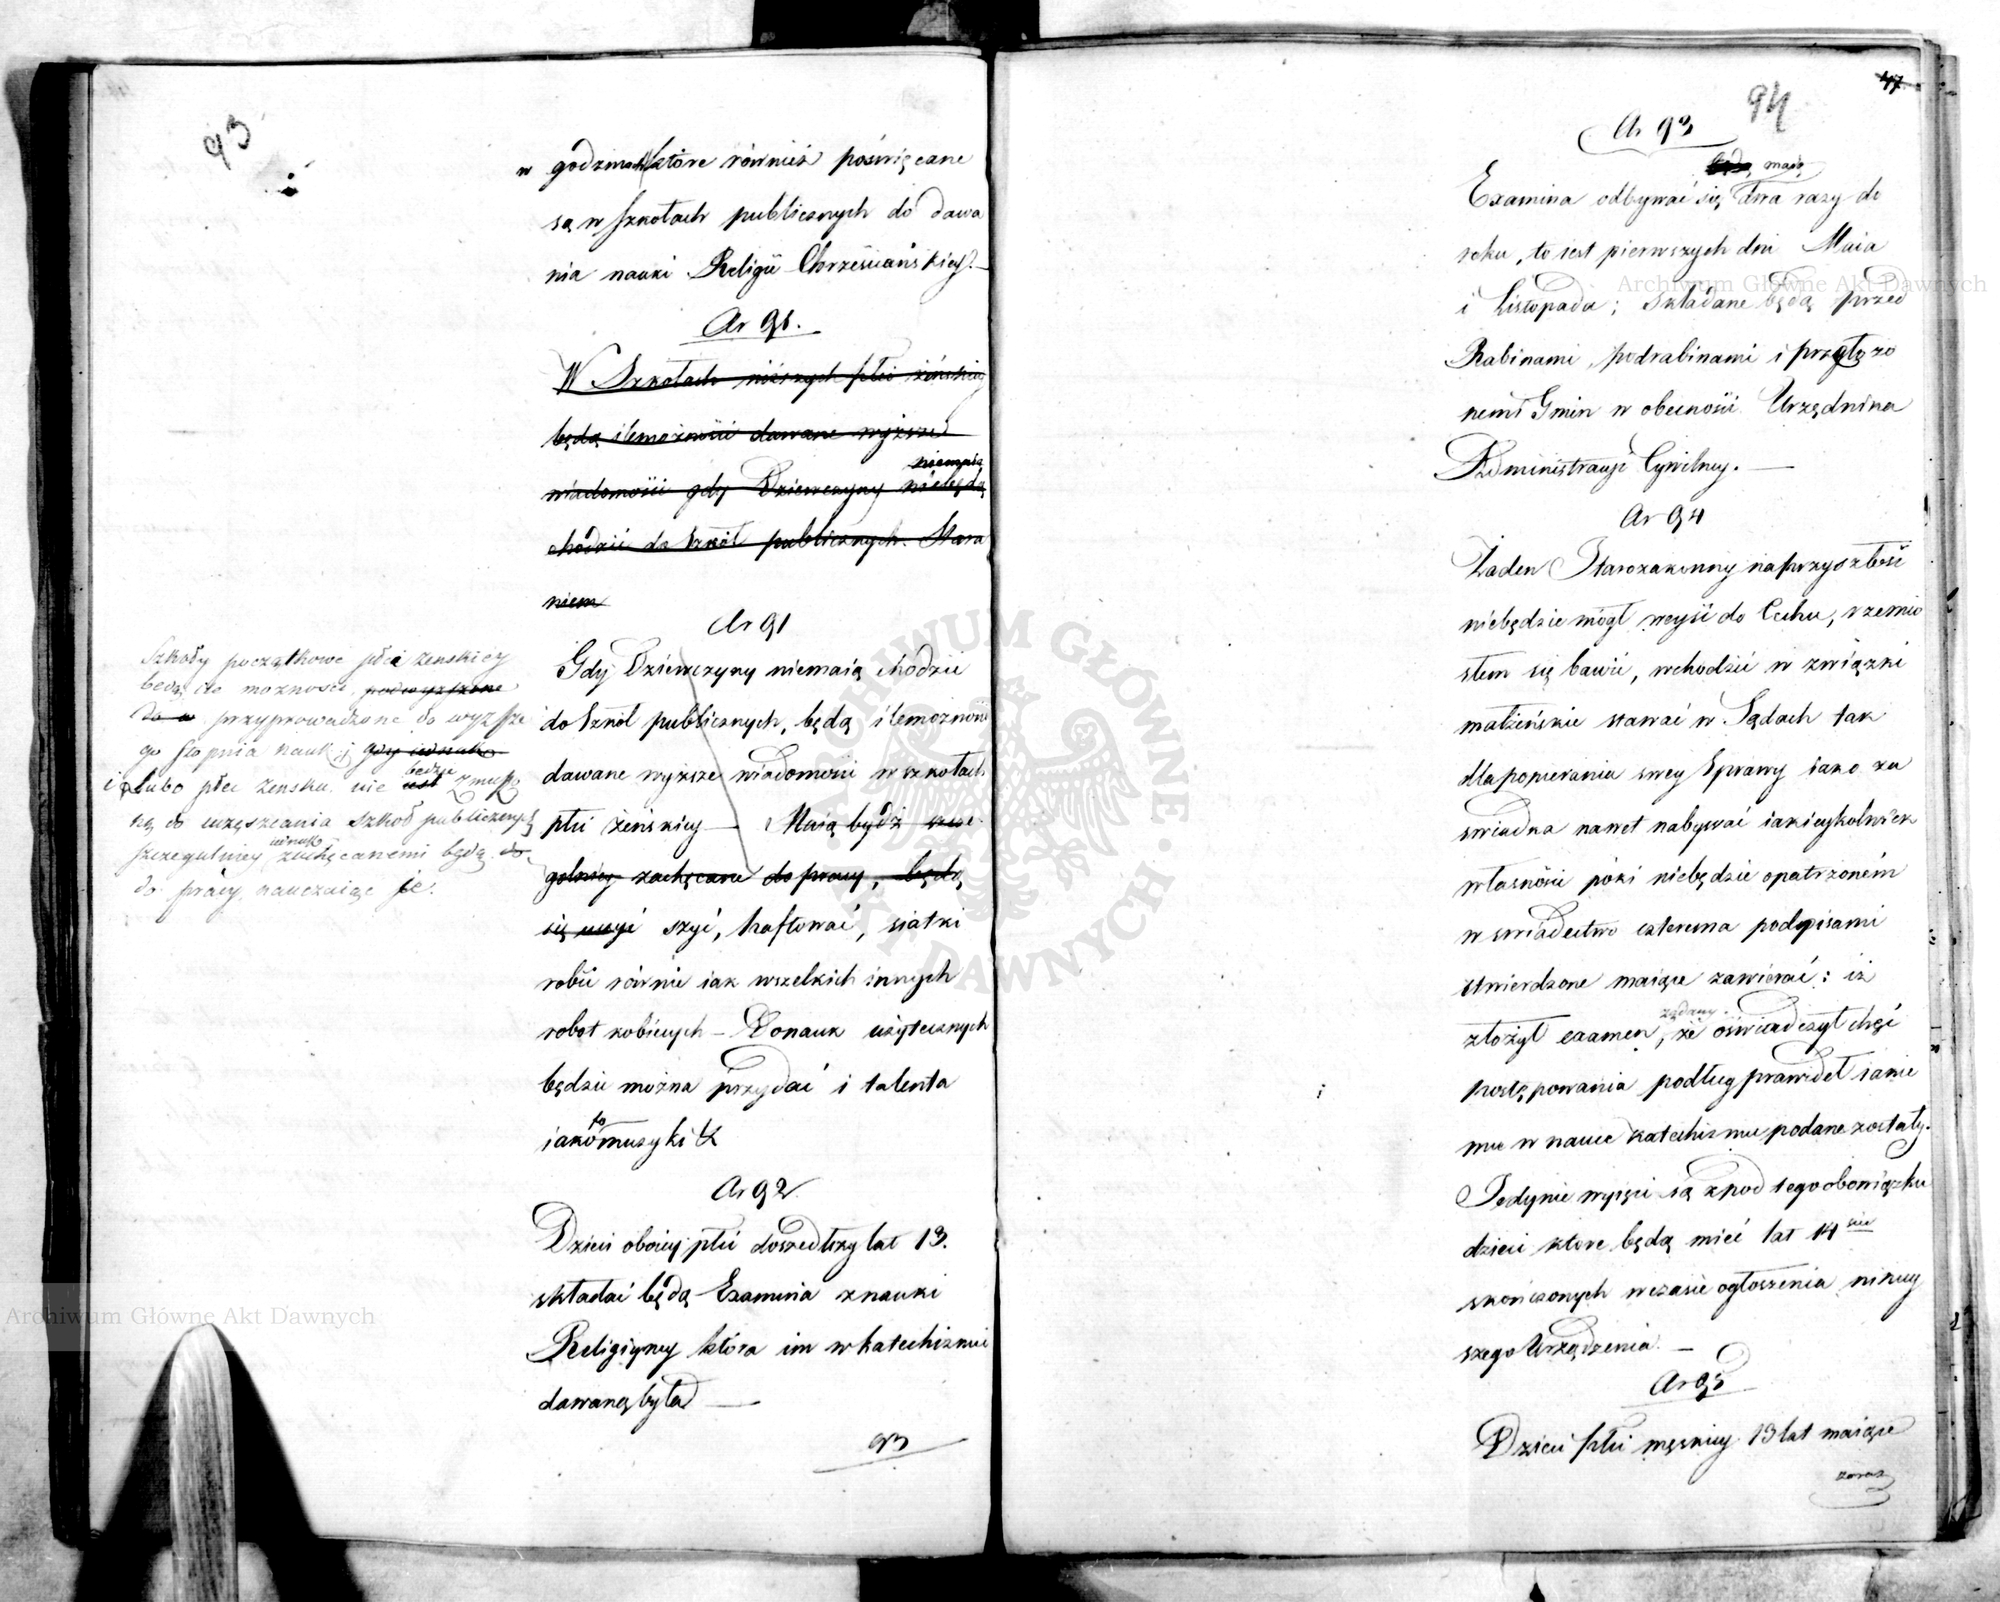 93
w godzinach które również poświęcane
są w szkołach publicznych do dawa
nia nauki Religii Chrześciańskiey. —
Ar 91.
W Szkołach niższych płci żeńskiey
będą ilemożności dawane wyższe
wiadomości gdy Dziewczyny niebędą
niemaią
chodzić do Szkół publicznych. Stara
niem
Ar 91
Gdy Dziewczyny niemaią chodzić
do Szkół publicznych, będą ilemożności
dawane wyższe wiadomości w szkołach
płci żeńskiey — Maią bydź szcze
gólniey zachęcane do pracy, będą
się uczyć szyć, haftować, siatki
robić równie iak wszelkich innych
robot kobiecych — Do nauk użytecznych
będzie można przydać i talenta
iako to muzyki &
Ar 92
Dzieci oboiey płci doszedłszy lat 13.
składać będą Examina z nauki
Religiyney która im w katechizmie
dawaną była —
93
Szkoły początkowe płci żenskiey
będą ile możności podwyższone
do w przyprowadzone do wyższe
go stopnia nauk; gdy iednak
i lubo płec żenska nie iest będzie zmuszo
ną do uczęszczania szkół publicznych
szczegulniey iednak zachęcanemi będą do
do pracy, nauczaiąc ie.
47
94
Ar 93
będą maią
Examina odbywać się dwa razy do
roku, to iest pierwszych dni Maia
i Listopada; składane będą przed
Rabinami, podrabinami i przełożo
nemi Gmin w obecności Urzędnika
Administracyi Cywilney. —
Ar 94
Żaden Starozakonny na przyszłość
niebędzie mógł weyść do Cechu, rzemio
słem się bawić, wchodzić w związki
małżeńskie stawać w Sądach tak
dla popierania swey Sprawy iako za
swiadka nawet nabywać iakieykolwiek
własności póki niebędzie opatrzonem
w swiadectwo czterema podpisami
stwierdzone maiące zawierać: iż
złożył examen, żądany że oświadczył chęć
postępowania podług prawideł iakie
mu w nauce katechizmu podane zostały.
Jedynie wyięci są z pod tego obowiązku
dzieci które będą mieć lat 14 cie
skończonych w czasie ogłoszenia nineey
szego Urządzenia. —
Ar 95
Dzieci płci męskiey 13 lat maiące
zaraz
Archiwum Główne Akt Dawnych
Archiwum Główne Akt Dawnych
ARCHIWUM GŁÓWNE AKT DAWNYCH